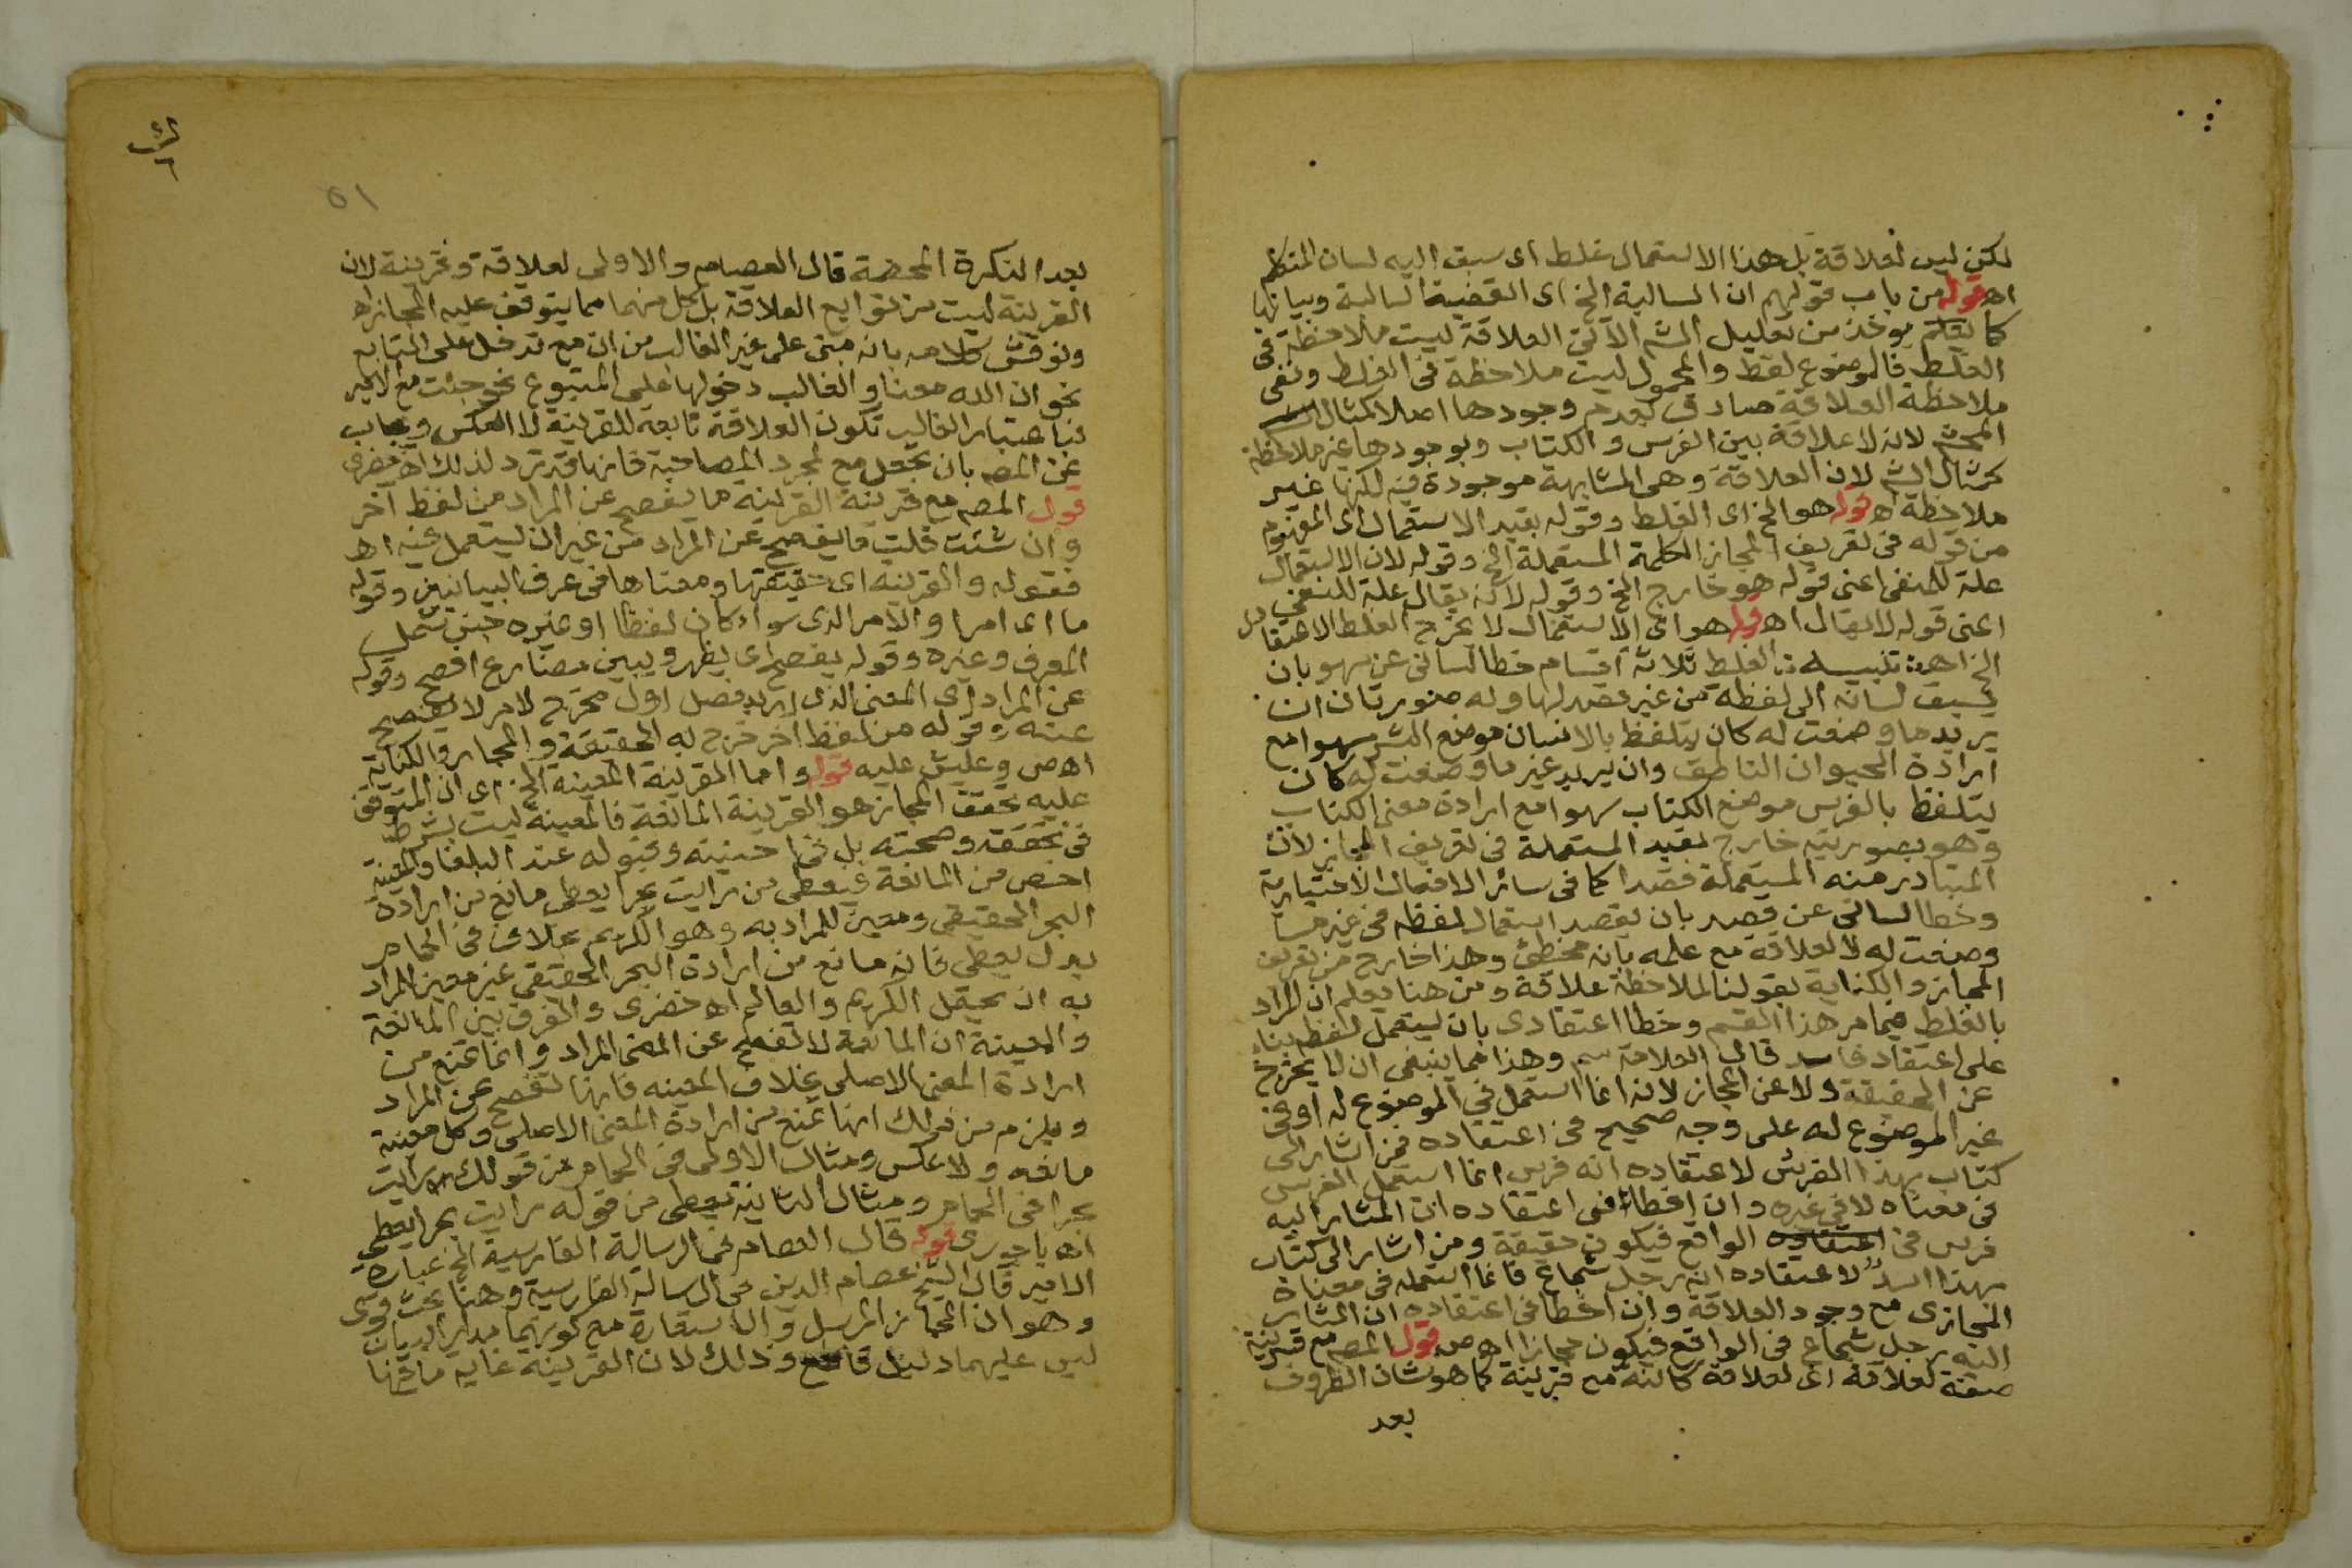 لكن ليس لعلاقة بل هذا الاستعمال غلط اى سبق اليه لسان المتكلم
اهـ قوله من باب قولهم ان السالبة الخ اى القضية السالبة وبيانها
كا يعلم يوخذ من تعليل المش الآتى العلاقة ليست ملاحظة فى
الغلط فالموضوع لفظ والمحمول ليست ملاحظة فى الغلط ونفى
ملاحظة العلاقة صادق بعدم وجودها اصلا كمثال
المحشى لانه لا علاقة بين الفرس والكتاب وبوجودها غير ملاحظة
كمثال الش لان العلاقة وهى المشابهة موجودة فيه لكنها غير
ملاحظة اهـ قوله هو الخ اى الغلط وقوله بقيد الاستعمال اى المفهوم
من قوله فى تعريف المجاز الكلمة المستعملة الخ وقوله لان الاستعمال
علة للمنفى اعنى قوله هو خارج الخ وقوله لانه يقال علة للنفى
اعنى قوله لا يقال اهـ قوله هو اى الاستعمال لا يخرج الغلط الاعتقادى
الخ اهـ تنبيه الغلط ثلاثة اقسام خطا لسانى عن سهو بان
يسبق لسانه الى لفظة من غير قصد لها وله صورتان ان
يريد ما وضعت له كان يتلفظ بالانسان موضع البشر سهوا مع
ارادة الحيوان الناطق وان يريد غير ما وضعت له كان
يتلفظ بالفرس موضع الكتاب سهوا مع ارادة معنى الكتاب
وهو بصورتيه خارج بقيد المستعملة فى تعريف المجاز لان
المتبادر منه المستعملة قصدا كما فى سائر الافعال الاختيارية
وخطا لسانى عن قصد بان يقصد استعمال لفظه فى غير ما
وضعت له لا لعلاقة مع علمه بانه مخطئ وهذا خارج من تعريف
المجاز والكناية بقولنا لملاحظة علاقة ومن هنا يعلم ان المراد
بالغلط فيما مر هذا القسم وخطا اعتقادى بان يستعمل لفظ بناء
على اعتقاد فاسد قال العلامة سم وهذا مما ينبغى ان لا يخرج
عن الحقيقة ولا عن المجاز لانه انما استعمل فى الموضوع له او فى
غير الموضوع له على وجه صحيح فى اعتقاده فمن اشار الى
كتاب بهذا الفرس لاعتقاده انه فرس انما استعمل الفرس
فى معناه لا فى غيره وان اخطا فى اعتقاده ان المشار اليه
فرس فى اعتقاده الواقع فيكون حقيقة ومن اشار الى كتاب
بهذا اسد لاعتقاده انه رجل شجاع فانما استعمله فى معناه
المجازى مع وجود العلاقة وان اخطا فى اعتقاده ان المشار
اليه رجل شجاع فى الواقع فيكون مجازا اهـ ص قول المصم مع قرينة
صفة لعلاقة اى لعلاقة كائنة مع قرينة كما هو شان الظروف
بعد
٥١
بعد النكرة المحضة قال العصام والاولى لعلاقة وقرينة لان
القرينة ليست من توابع العلاقة بل كل منهما مما يتوقف عليه المجاز اهـ
ونوقش كلامه بانه مبنى على غير الغالب من ان مع تدخل على التابع
نحو ان الله معنا والغالب دخولها على المتبوع نحو جئت مع الامير
فباعتبار الغالب تكون العلاقة تابعة للقرينة لا العكس ويجاب
عن المصم بان تجعل مع لمجرد المصاحبة فانها قد ترد لذلك اهـ خضرى
قول المصم مع قرينة القرينة ما يفصح عن المراد من لفظ آخر
وان شئت قلت ما يفصح عن المراد من غير ان يستعمل فيه اهـ
فقوله والقرينة اى حقيقتها ومعناها فى عرف البيانيين وقوله
ما اى امرا والامر الذى سواء كان لفظا او غيره جنس يشمل
المعرف وغيره وقوله يفصح اى يظهر ويبين مضارع افصح وقوله
عن المراد اى المعنى الذى اريد فصل اول مخرج لامر لا يفصح
عنه وقوله من لفظ آخر خرج به الحقيقة والمجاز والكناية
اهـ ص وعليش عليه قوله واما القرينة المعينة الخ اى ان المتوقف
عليه تحقق المجاز هو القرينة المانعة فالمعينة ليست بشرط
فى تحققه وصحته بل فى حسنه وقبوله عند البلغا والمعينة
اخص من المانعة فيعطى من رايت بحرا يعطى مانع من ارادة
البحر الحقيقى ومعين للمراد به وهو الكريم بخلاف فى الحمام
بدل يعطى فانه مانع من ارادة البحر الحقيقى غير معين المراد
به اذ يحتمل الكريم والعالم اهـ خضرى والفرق بين المانعة
والمعينة ان المانعة لا تفصح عن المعنى المراد وانما تمنع من
ارادة المعنى الاصلى بخلاف المعينه فانها تفصح عن المراد
ويلزم من ذلك انها تمنع من ارادة المعنى الاصلى وكل معينة
مانعه ولا عكس ومثال الاولى فى الحمام من قولك رايت
بحرا فى الحمام ومثال الثانية يعطى من قوله رايت بحرا يعطى
اهـ باجورى قوله قال العصام فى الرسالة الفارسية الخ عبارة
الامير قال الشيخ عصام الدين فى الرسالة الفارسية وهنا بحث قوى
وهو ان المجاز المرسل والاستعارة مع كونهما مدار البيان
ليس عليهما دليل قاطع وذلك لان القرينة غاية ما فيها